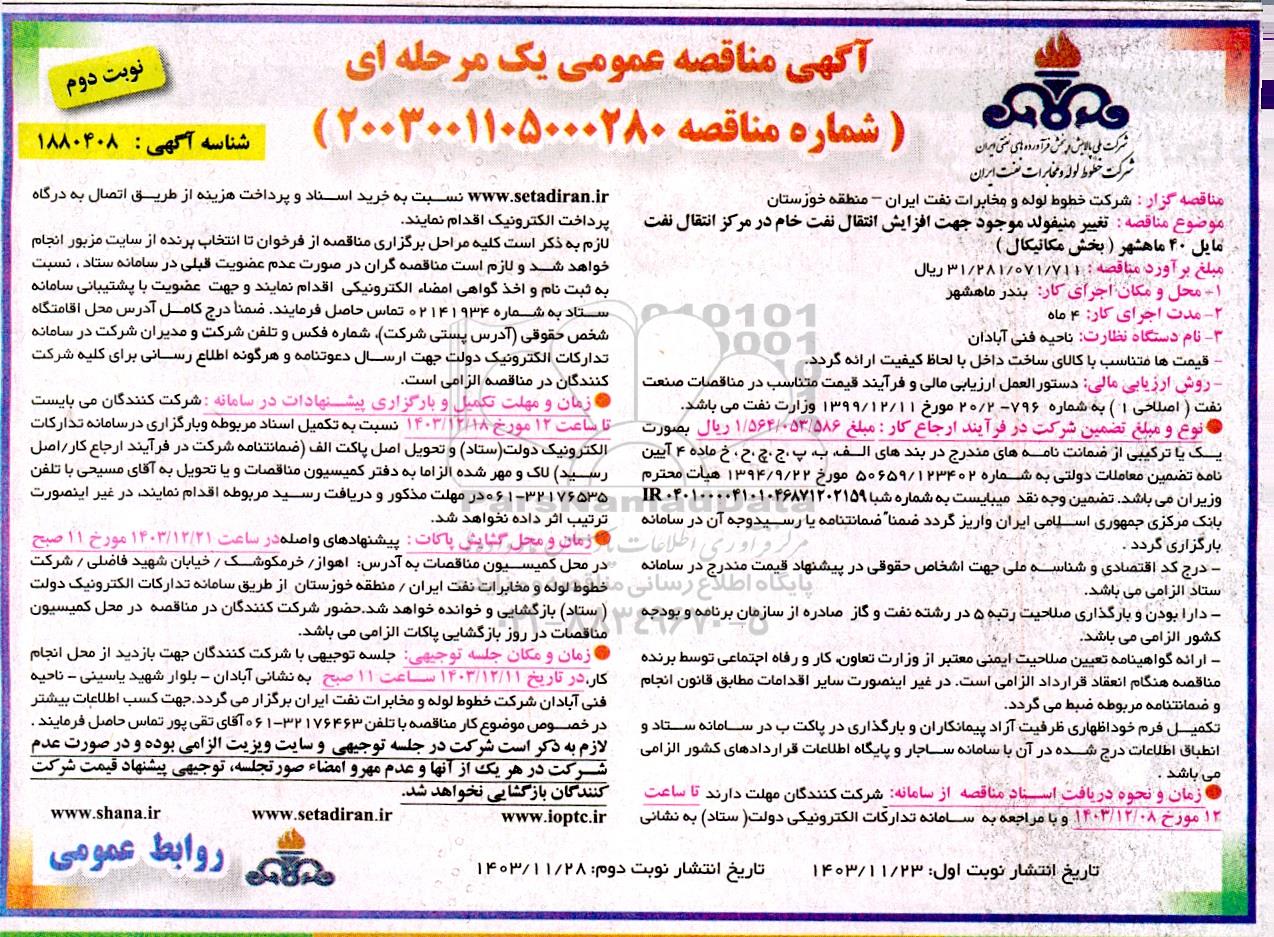 نوبت دوم
آگهی مناقصه عمومی یک مرحله ای
( شماره مناقصه ۲۰۰۳۰۰۱۱۰۵۰۰۰۲۸۰ )
شناسه آگهی : ۱۸۸۰۴۰۸
شرکت ملی پالایش و پخش فرآورده های نفتی ایران
شرکت خطوط لوله و مخابرات نفت ایران
مناقصه گزار : شرکت خطوط لوله و مخابرات نفت ایران – منطقه خوزستان
موضوع مناقصه : تغییر منیفولد موجود جهت افزایش انتقال نفت خام در مرکز انتقال نفت
مایل ۴۰ ماهشهر ( بخش مکانیکال )
مبلغ برآورد مناقصه : ۳۱/۲۸۱/۰۷۱/۷۱۱ ریال
۱- محل و مکان اجرای کار: بندر ماهشهر
۲- مدت اجرای کار: ۴ ماه
۳- نام دستگاه نظارت: ناحیه فنی آبادان
– قیمت ها متناسب با کالای ساخت داخل با لحاظ کیفیت ارائه گردد.
– روش ارزیابی مالی: دستورالعمل ارزیابی مالی و فرآیند قیمت متناسب در مناقصات صنعت
نفت ( اصلاحی ۱ ) به شماره ۷۹۶- ۲۰/۲ مورخ ۱۳۹۹/۱۲/۱۱ وزارت نفت می باشد.
نوع و مبلغ تضمین شرکت در فرآیند ارجاع کار : مبلغ ۱/۵۶۴/۰۵۳/۵۸۶ ریال بصورت
یک یا ترکیبی از ضمانت نامه های مندرج در بند های الف، ب، پ ،ج ،چ ،ح ، خ ماده ۴ آیین
نامه تضمین معاملات دولتی به شماره ۵۰۶۵۹/۱۲۳۴۰۲ مورخ ۱۳۹۴/۹/۲۲ هیأت محترم
وزیران می باشد. تضمین وجه نقد میبایست به شماره شبا IR ۰۴۰۱۰۰۰۰۴۱۰۱۰۴۶۸۷۱۲۰۲۱۵۹
بانک مرکزی جمهوری اسلامی ایران واریز گردد ضمناً ضمانتنامه یا رسیدوجه آن در سامانه
بارگزاری گردد .
– درج کد اقتصادی و شناسه ملی جهت اشخاص حقوقی در پیشنهاد قیمت مندرج در سامانه
ستاد الزامی می باشد.
– دارا بودن و بارگذاری صلاحیت رتبه ۵ در رشته نفت و گاز صادره از سازمان برنامه و بودجه
کشور الزامی می باشد.
– ارائه گواهینامه تعیین صلاحیت ایمنی معتبر از وزارت تعاون، کار و رفاه اجتماعی توسط برنده
مناقصه هنگام انعقاد قرارداد الزامی است. در غیر اینصورت سایر اقدامات مطابق قانون انجام
و ضمانتنامه مربوطه ضبط می گردد.
تکمیل فرم خوداظهاری ظرفیت آزاد پیمانکاران و بارگذاری در پاکت ب در سامانه ستاد و
انطباق اطلاعات درج شده در آن با سامانه ساجار و پایگاه اطلاعات قراردادهای کشور الزامی
می باشد .
زمان و نحوه دریافت اسناد مناقصه از سامانه: شرکت کنندگان مهلت دارند تا ساعت
۱۲ مورخ ۱۴۰۳/۱۲/۰۸ و با مراجعه به سامانه تدارکات الکترونیکی دولت( ستاد) به نشانی
www.setadiran.ir نسبت به خرید اسناد و پرداخت هزینه از طریق اتصال به درگاه
پرداخت الکترونیک اقدام نمایند.
لازم به ذکر است کلیه مراحل برگزاری مناقصه از فرخوان تا انتخاب برنده از سایت مزبور انجام
خواهد شد و لازم است مناقصه گران در صورت عدم عضویت قبلی در سامانه ستاد ، نسبت
به ثبت نام و اخذ گواهی امضاء الکترونیکی اقدام نمایند و جهت عضویت با پشتیبانی سامانه
ستاد به شماره ۰۲۱۴۱۹۳۴ تماس حاصل فرمایند. ضمناً درج کامل آدرس محل اقامتگاه
شخص حقوقی (آدرس پستی شرکت)، شماره فکس و تلفن شرکت و مدیران شرکت در سامانه
تدارکات الکترونیک دولت جهت ارسال دعوتنامه و هرگونه اطلاع رسانی برای کلیه شرکت
کنندگان در مناقصه الزامی است.
زمان و مهلت تکمیل و بارگزاری پیشنهادات در سامانه : شرکت کنندگان می بایست
تا ساعت ۱۲ مورخ ۱۴۰۳/۱۲/۱۸ نسبت به تکمیل اسناد مربوطه وبارگزاری درسامانه تدارکات
الکترونیک دولت(ستاد) و تحویل اصل پاکت الف (ضمانتنامه شرکت در فرآیند ارجاع کار/اصل
رسید) لاک و مهر شده الزاما به دفتر کمیسیون مناقصات و یا تحویل به آقای مسیحی با تلفن
۰۶۱-۳۲۱۷۶۵۳۵در مهلت مذکور و دریافت رسید مربوطه اقدام نمایند، در غیر اینصورت
ترتیب اثر داده نخواهد شد.
زمان و محل گشایش پاکات : پیشنهادهای واصله در ساعت ۱۴۰۳/۱۲/۲۱ مورخ ۱۱ صبح
در محل کمیسیون مناقصات به آدرس: اهواز/ خرمکوشک / خیابان شهید فاضلی / شرکت
خطوط لوله و مخابرات نفت ایران / منطقه خوزستان از طریق سامانه تدارکات الکترونیک دولت
( ستاد) بازگشایی و خوانده خواهد شد.حضور شرکت کنندگان در مناقصه در محل کمیسیون
مناقصات در روز بازگشایی پاکات الزامی می باشد.
زمان و مکان جلسه توجیهی: جلسه توجیهی با شرکت کنندگان جهت بازدید از محل انجام
کار، در تاریخ ۱۴۰۳/۱۲/۱۱ ساعت ۱۱ صبح به نشانی آبادان – بلوار شهید یاسینی – ناحیه
فنی آبادان شرکت خطوط لوله و مخابرات نفت ایران برگزار می گردد.جهت کسب اطلاعات بیشتر
در خصوص موضوع کار مناقصه با تلفن ۳۲۱۷۶۴۶۳-۰۶۱ آقای تقی پور تماس حاصل فرمایند .
لازم به ذکر است شرکت در جلسه توجیهی و سایت ویزیت الزامی بوده و در صورت عدم
شرکت در هر یک از آنها و عدم مهرو امضاء صورتجلسه، توجیهی پیشنهاد قیمت شرکت
کنندگان بازگشایی نخواهد شد.
www.ioptc.ir www.setadiran.ir www.shana.ir
تاریخ انتشار نوبت اول: ۱۴۰۳/۱۱/۲۳ تاریخ انتشار نوبت دوم: ۱۴۰۳/۱۱/۲۸
روابط عمومی
ParsNamadData
پایگاه اطلاع رسانی مناقصه و مزایده
۰۲۱-۸۸۳۴۹۶۷۰-۵